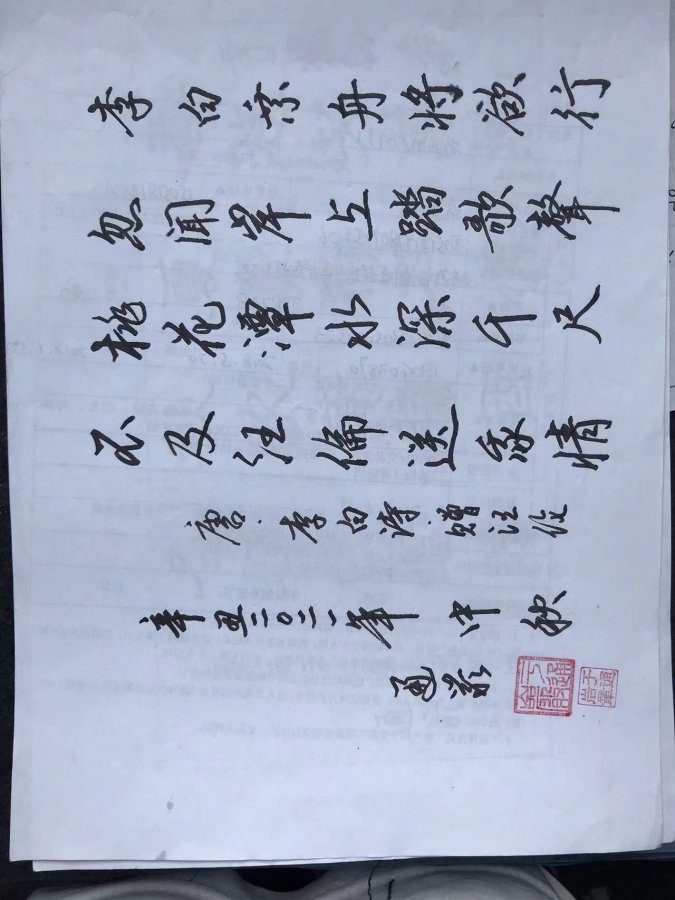 李白乘舟将欲行
忽闻岸上踏歌聲
桃花潭水深千尺
不及汪倫送我情
唐·李白诗·赠汪伦
辛丑二〇二一年 中秋